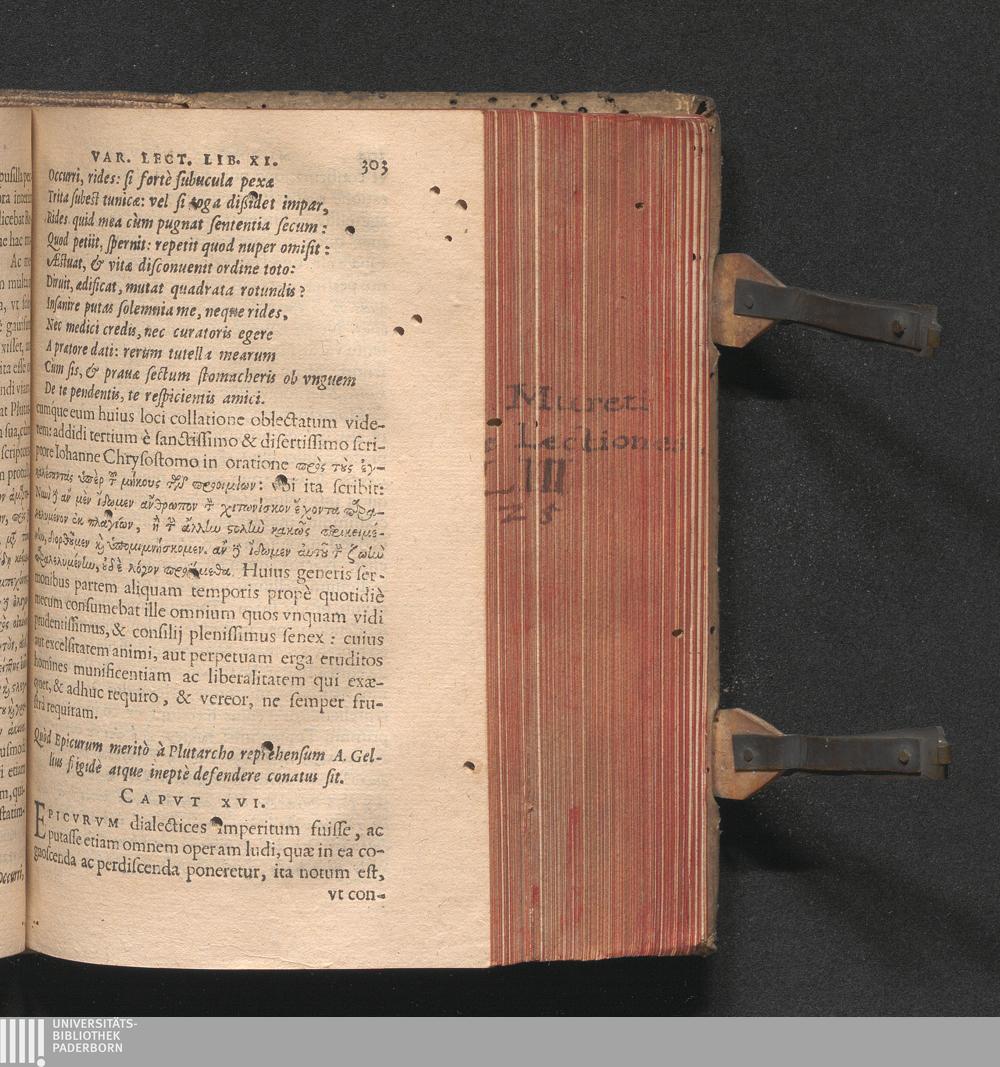 VAR. LECT. LIB. XI. 303
Occurri, rides: si fortè subucula pexæ
Trita subest tunicæ: vel si toga dißidet impar,
Rides. quid mea cùm pugnat sententia secum:
Quod petiit, spernit: repetit quod nuper omisit:
Æstuat, & vitæ disconuenit ordine toto:
Diruit, ædificat, mutat quadrata rotundis?
Insanire putas solemnia me, neque rides,
Nec medici credis, nec curatoris egere
A prætore dati: rerum tutela mearum
Cùm sis, & prauæ sectum stomacheris ob vnguem
De te pendentis, te respicientis amici.
cumque eum huius loci collatione oblectatum vide-
rem: addidi tertium è sanctissimo & disertissimo scri-
ptore Iohanne Chrysostomo in oratione πρὸς τοὺς ἐγ-
ὑπὲρ τοῦ μήκους τῶν προοιμίων: vbi ita scribit:
ἂν μὲν ἴδωμεν ἄνθρωπον τὸν χιτωνίσκον ἔχοντα παρα-
ἐκ πλαγίων, ἢ τὴν ἄλλην στολὴν κακῶς περικειμέ-
διορθοῦμεν καὶ ὑπομιμνήσκομεν. ἂν δὲ ἴδωμεν αὐτοῦ τὴν ζωὴν
παραλελυμένην, οὐδὲ λόγον προϊέμεθα. Huius generis ser-
monibus partem aliquam temporis propè quotidiè
mecum consumebat ille omnium quos vnquam vidi
prudentissimus, & consilij plenissimus senex: cuius
aut excelsitatem animi, aut perpetuam erga eruditos
homines munificentiam ac liberalitatem qui exæ-
quet, & adhuc requiro, & vereor, ne semper fru-
strà requiram.
Quòd Epicurum meritò à Plutarcho reprehensum A. Gel-
lius frigidè atque ineptè defendere conatus sit.
CAPVT XVI.
EPICVRVM dialectices imperitum fuisse, ac
putasse etiam omnem operam ludi, quæ in ea co-
gnoscenda ac perdiscenda poneretur, ita notum est,
vt con-
Mureti
Lectiones
LIII
25
UNIVERSITÄTS-
BIBLIOTHEK
PADERBORN